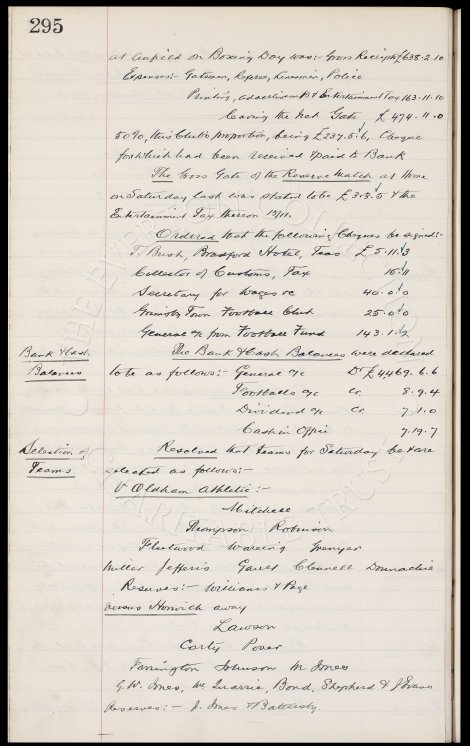 295
at Anfield on Boxing Day was:- Gross Receipts £638.2.10
Expenses:- Gatemen, Referee, Linesmen, Police
Printing, advertisements & Entertainment Tax 163.11.10
leaving the Nett Gate £474.11.0
50%, this Club's proportion, being £237.5.6, Cheque
for which had been received & paid to Bank
The Gross Gate of the Reserve Match at Home
on Saturday last was stated to be £3.8.5 & the
Entertainment Tax thereon 15/11.
Ordered that the following Cheques be signed:-
T. Bush, Bradford Hotel, Teas £5.11.3
Collector of Customs, Tax 15.11
Secretary for Wages &c 40.0.0
Grimsby Town Football Club 25.0.0
General a/c from Football Fund 143.1.2
Bank & Cash
Balances
The Bank & Cash Balances were declared
to be as follows:- General a/c Dr £4469.6.6
Footballs a/c Cr. 8.9.4
Dividend a/c Cr. 7.1.0
Cash in Office 7.19.7
Selection of
Teams
Resolved that teams for Saturday be & are
selected as follows:-
V Oldham Athletic:-
Mitchell
Thompson Robinson
Fleetwood Wareing Grenyer
Miller Jefferis Gault Clennell Donnachie
Reserves:- Williams & Page
versus Horwich away
Lawson
Carty Pover
Farrington Johnson M Jones
G.W. Jones, Mc Quarrie, Bond, Shepherd & J Evans
Reserves:- J. Jones & Battersby.